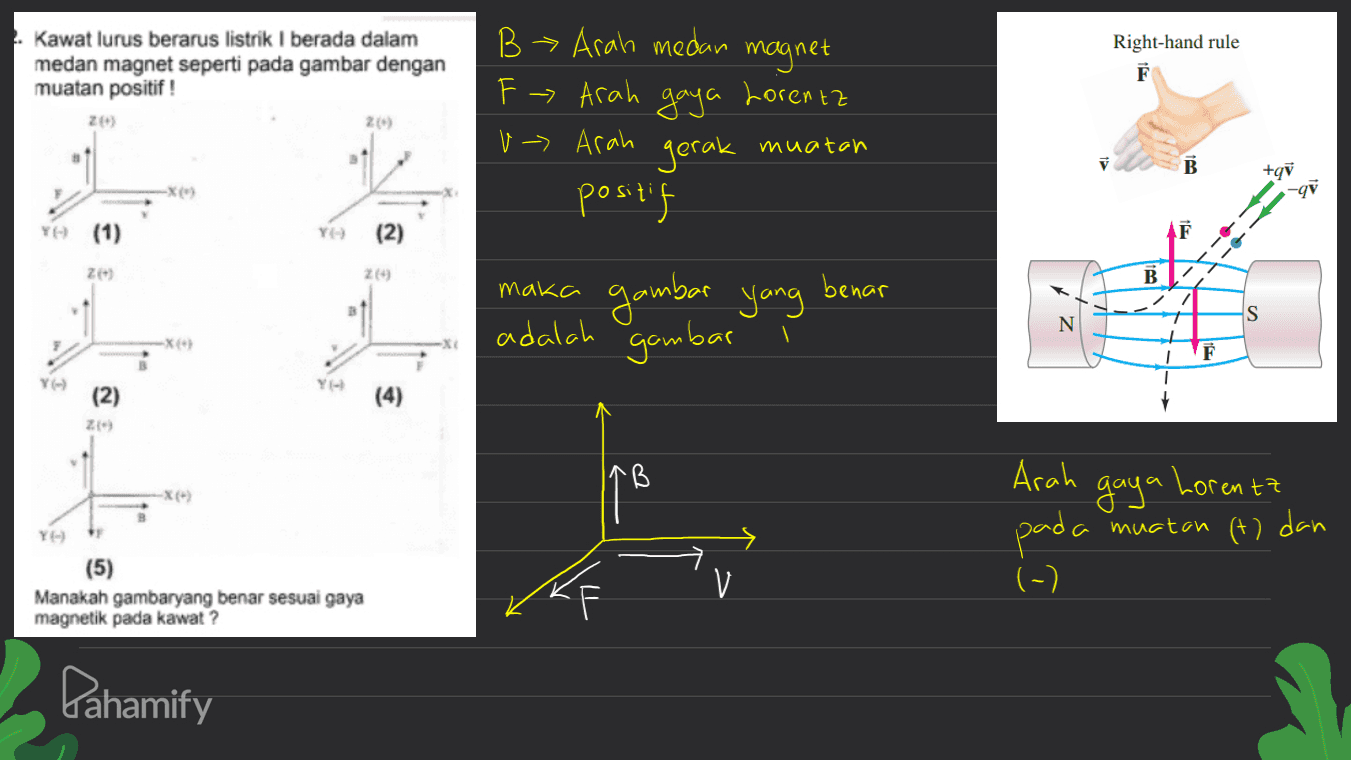 2. Kawat lurus berarus listrik I berada dalam
medan magnet seperti pada gambar dengan
muatan positif !
Z(+)
B
F
X(+)
V
Y(-)
(1)
Z(+)
B
F
X
V
Y(-)
(2)
Z(+)
V
F
X(+)
B
Y(-)
(2)
Z(+)
B
V
X(
F
Y(-)
(4)
Z(+)
V
X(+)
B
Y(-)
F
(5)
Manakah gambaryang benar sesuai gaya
magnetik pada kawat ?
B → Arah medan magnet
F → Arah gaya Lorentz
V → Arah gerak muatan
positif
maka gambar yang benar
adalah gambar 1
B
V
F
Right-hand rule
F
v
B
+qv
-qv
F
B
N
S
F
Arah gaya Lorentz
pada muatan (+) dan
(-)
Pahamify